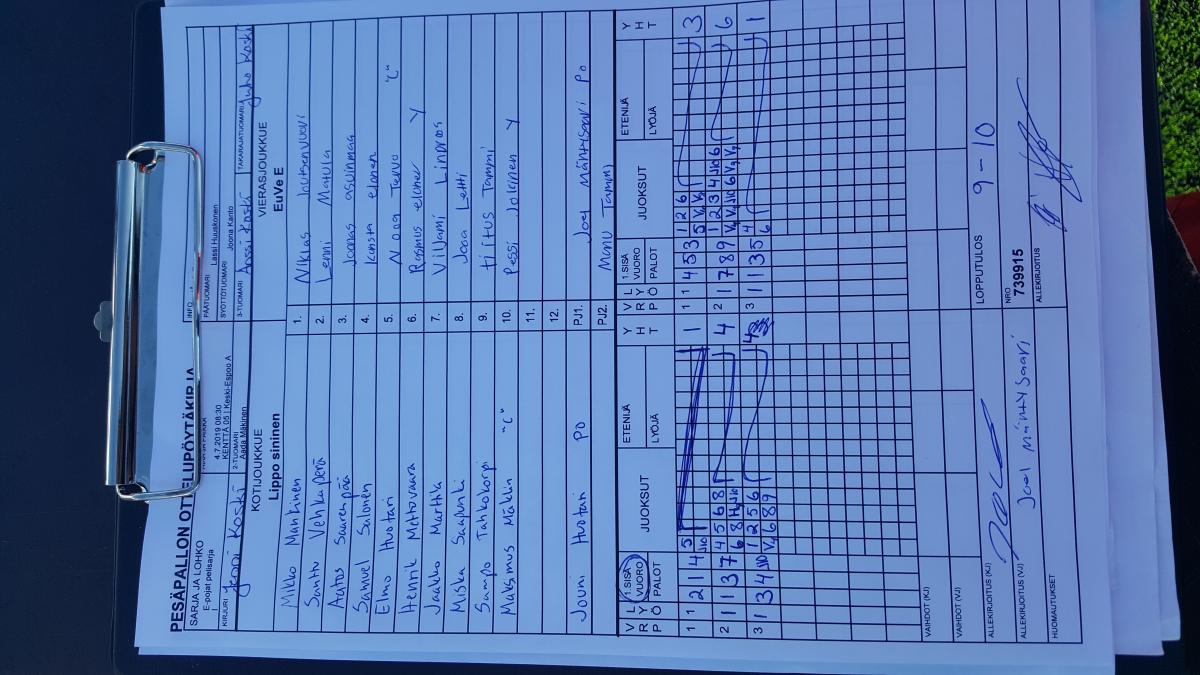 PESÄPALLON OTTELUPÖYTÄKIRJA
SARJA JA LOHKO
E-pojat pelisarja
I
4.7.2019 08:30
KENTTÄ 05 I Keski-Espoo A
INFO
PÄÄTUOMARI
Lassi Huuskonen
SYÖTTÖTUOMARI
Joona Kanto
KIRJURI
Jenni Koski
2-TUOMARI
Aada Mäkinen
3-TUOMARI
Anssi Koski
TAKARAJATUOMARI
Juho Koski
KOTIJOUKKUE
Lippo sininen
VIERASJOUKKUE
EuVe E
Mikko Mankinen 1. Niklas Joutsenvuori
Santtu Vehkaperä 2. Lenni Matula
Aatos Saarenpää 3. Joonas asuinmaa
Samuel Salonen 4. Konsta elonen
Elmo Huotari 5. Nooa Tervo "C"
Henrik Mettovaara 6. Rasmus Y
Jaakko Marttila 7. Viljami Linproos
Miska Saapunki 8. Joona Lehti
Sampo Tahkokorpi 9. tiitus Tammi
Maksimus Mäklin "C" 10. Pessi Jokinen Y
11.
12.
Jouni Huotari PO PJ1. Joel Mäntysaari PO
PJ2. Manu Tammi
V R P L Y Ö 1.SISÄ VUORO PALOT JUOKSUT ETENIJÄ LYÖJÄ Y H T V R P L Y Ö 1.SISÄ VUORO PALOT JUOKSUT ETENIJÄ LYÖJÄ Y H T
1 1 2 1 4 5 1 1 1 4 5 3 1 2 6 3
2 1 1 3 7 4 5 6 8 4 2 1 7 8 9 1 2 3 4 6 6
3 1 3 4 1 2 5 6 4 3 1 1 3 5 4 1
V 6 8 9 6
VAIHDOT (KJ)
VAIHDOT (VJ)
LOPPUTULOS
9 - 10
ALLEKIRJOITUS (KJ)
NRO
739915
ALLEKIRJOITUS (VJ)
Joel Mäntysaari
ALLEKIRJOITUS
HUOMAUTUKSET